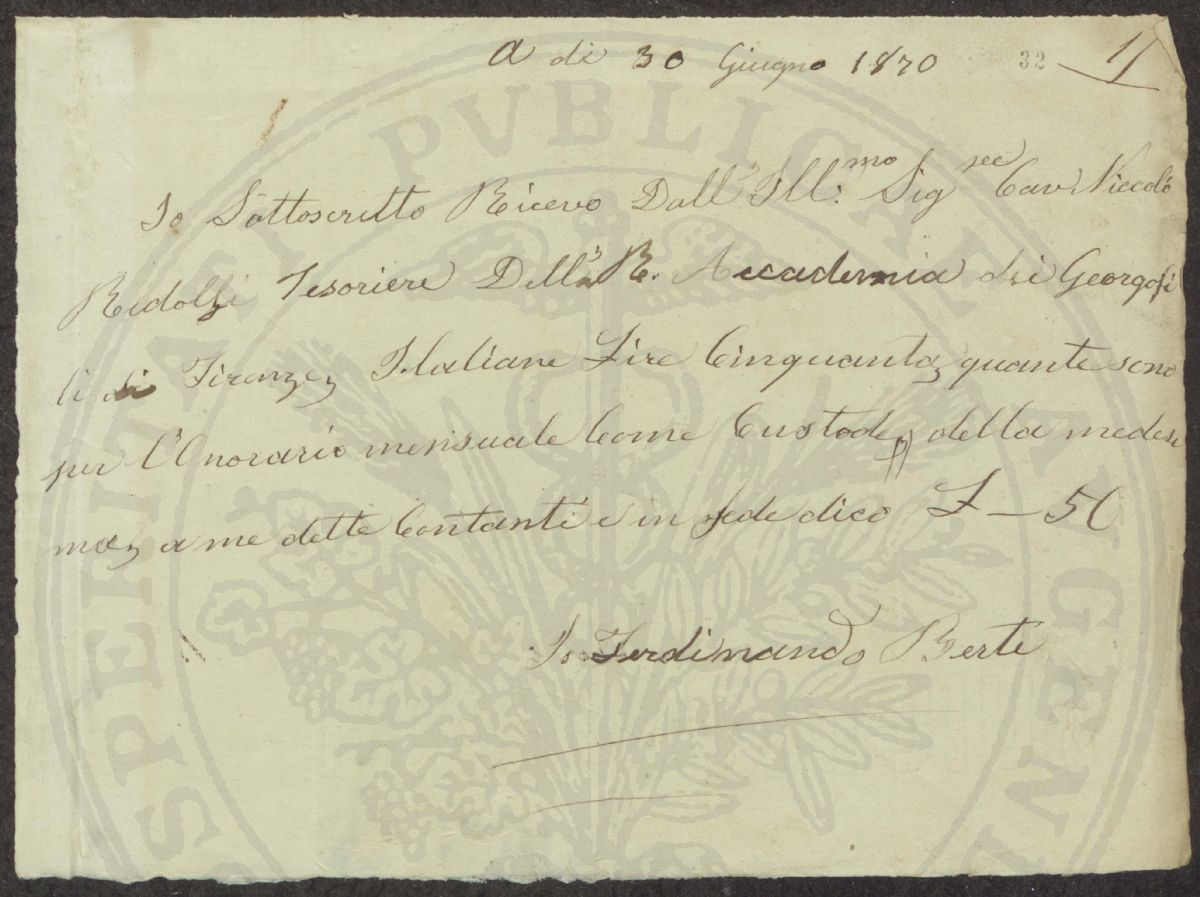 a di 30 Giugno 1870 32 1
Io Sottoscritto Ricevo Dall' Ill:mo Sigree Cav: Niccolò
Ridolfi Tesoriere Dell' R. Accademia dei Georgofi
li di Firenze, Italiane Lire Cinquanta, quante sono
per l'Onorario mensuale Come Custode, della medesi
ma, a me dette Contanti e in fede dico £ — 50
Io Ferdinando Berti
PVBLICAE
SPERITATI
AVGEN